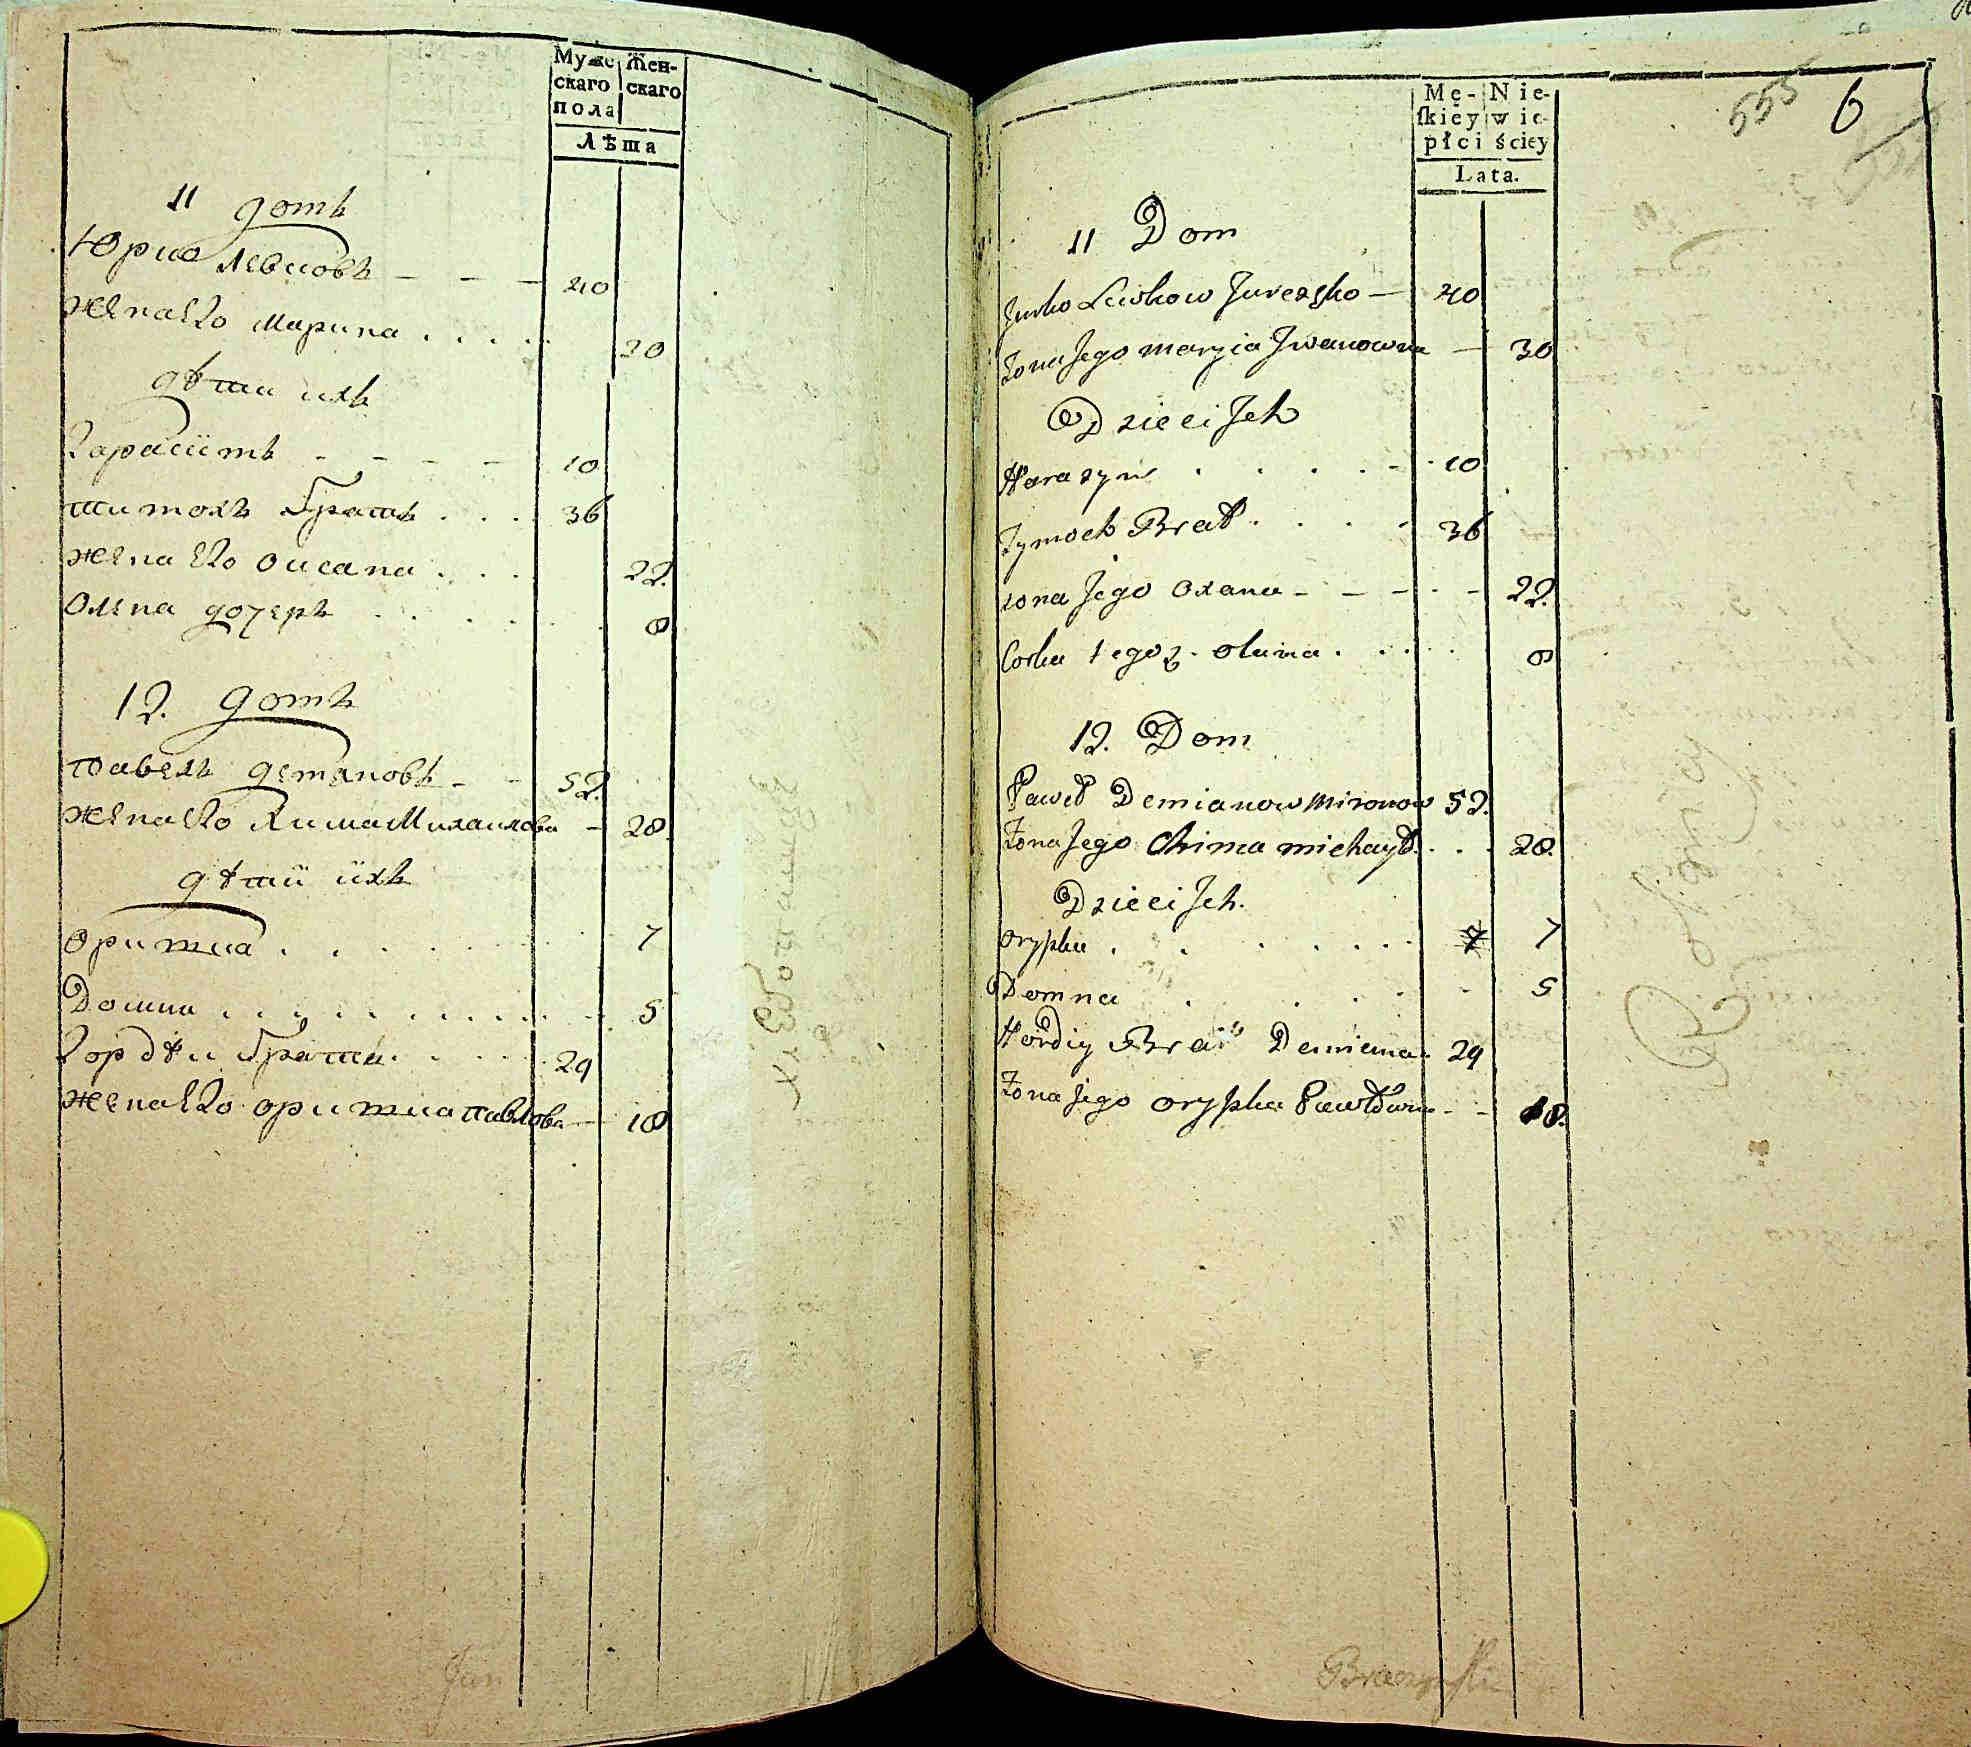 Муже скаго пола
Женскаго
Лѣта
11 домъ
Юрко Левковъ — — — 40
жена его Марина . . . . . 30
дѣти ихъ
Гарасимъ - - - - 10
Тимохъ братъ . . . 36
жена его Оксана . . . 22.
Олена дочеръ . . . . . 8
12. домъ
Павелъ демяновъ - - 52.
жена его Хима Михаилова — 28
дѣти ихъ
Оришка . . . . . . 7
Домна . . . . . . . . . 5
Гордѣи братъ . . . . 29
жена его оришка павлова — 18
Mę-skiey płci
Niewieściey
Lata.
555
6
11 Dom
Jurko Lewkow Jurczko — 40
Zona Jego maryia Jwanowna — 30
Dzieci Jch
Harazym . . . . . 10
Tymoch Brat . . . . 36
zona Jego Oxana - - - - - 22.
Corka tegoz. olena . . . . 8
12. Dom
Paweł Demianow Mironow 52.
Zona Jego Chima michaył. . . . 28.
Dzieci Jch.
oryszka . . . . . . . 7
Domna . . . . . 5
Hordiy Brat Demiena. 29
Zona Jego oryszka Pawłowna - - 18.
Jan